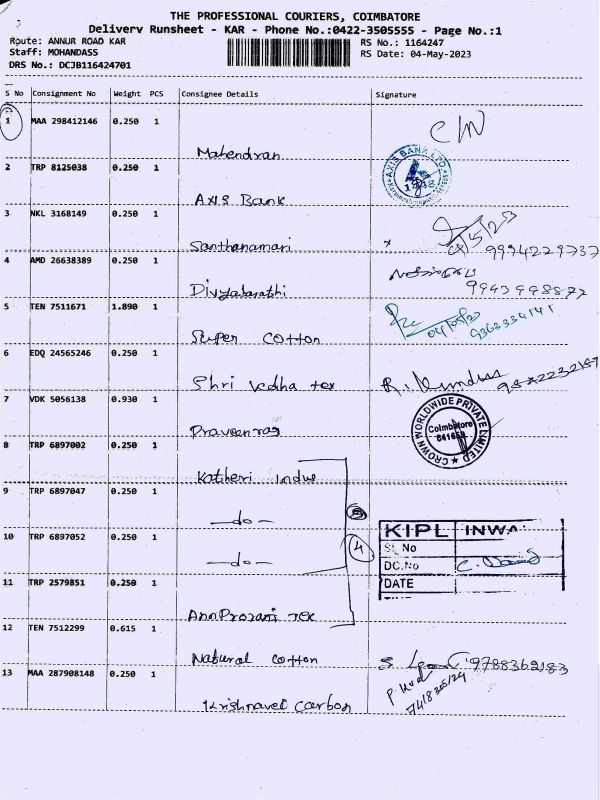 THE PROFESSIONAL COURIERS, COIMBATORE
Delivery Runsheet - KAR - Phone No.:0422-3505555 - Page No.:1
Route: ANNUR ROAD KAR RS No.: 1164247
Staff: MOHANDASS RS Date: 04-May-2023
DRS No.: DCJB116424701
S No Consignment No Weight PCS Consignee Details Signature
1 MAA 298412146 0.250 1
Mahendran
2 TRP 8125038 0.250 1 AXIS BANK LTD
Axis Bank
3 NKL 3168149 0.250 1
Santhanamari 9994229737
4 AMD 26638389 0.250 1
Divyabarathi 9943998872
5 TEN 7511671 1.890 1
Super Cotton
6 EDQ 24565246 0.250 1
Shri Vedha tex
7 VDK 5056138 0.930 1 CROWN WORLDWIDE PRIVATE LIMITED
Praveenraj Coimbatore
8 TRP 6897002 0.250 1
Katheri Indus
9 TRP 6897047 0.250 1
-do-
10 TRP 6897052 0.250 1 4 KIPL INWA
-do- SL No
DC.No
11 TRP 2579851 0.250 1 DATE
12 TEN 7512299 0.615 1
Natural Cotton 9788362183
13 MAA 287908148 0.250 1
Krishnavel Carbon